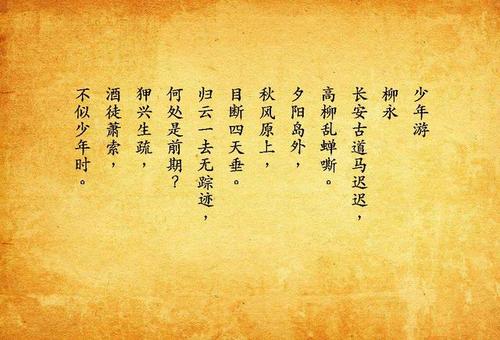 少年游
柳永
长安古道马迟迟，
高柳乱蝉嘶。
夕阳岛外，
秋风原上，
目断四天垂。
归云一去无踪迹，
何处是前期？
狎兴生疏，
酒徒萧索，
不似少年时。